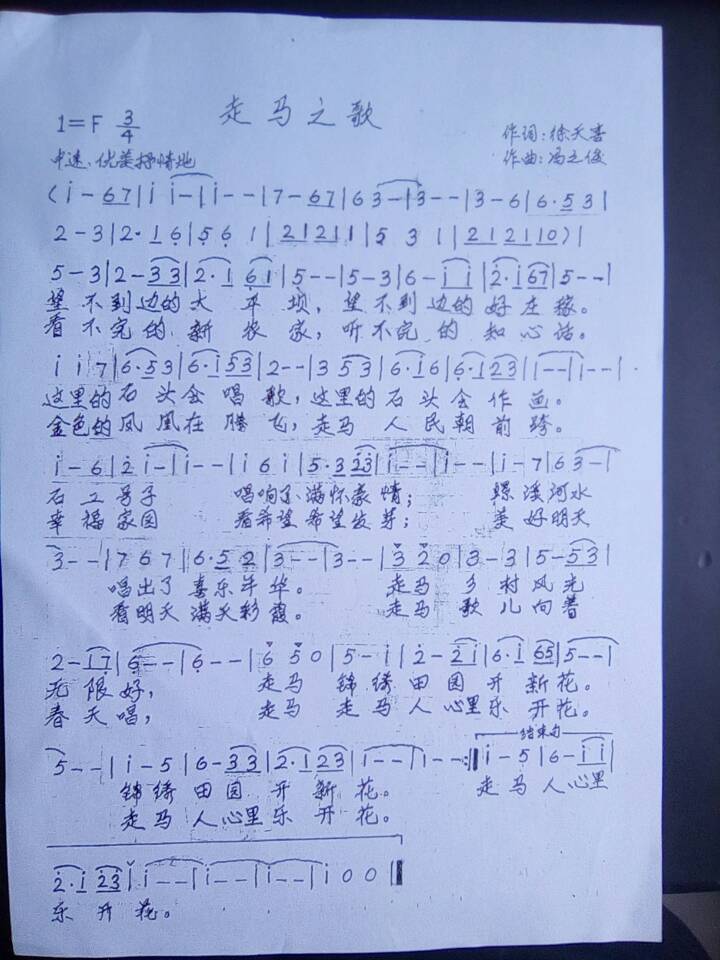 走马之歌
1=F 3/4
作词:徐天喜
中速、优美抒情地
作曲:冯之俊
(i - 67|i i -|i - -|7 - 67|6 3 -|3 - -|3 - 6|6·5 3|
2 - 3|2·1 6|5 6 1|21211|5 3 1|212110)|
5 - 3|2 - 33|2·1 61|5 - -|5 - 3|6 - ii|2·i 67|5 - -|
望不到边的大平坝,望不到边的好庄稼。
看不完的新农家,听不完的知心话。
i i 7|6·53|6·i53|2 - -|3 53|6·i6|6·123|1 - -|1 - -|
这里的石头会唱歌,这里的石头会作画。
金色的凤凰在腾飞,走马人民朝前跨。
i - 6|2 i -|i - -|i 6 i|5·3 23|i - -|i - -|i - 7|6 3 -|
石工号子 唱响了满怀豪情; 螺溪河水
幸福家园 看希望希望发芽; 美好明天
3 - -|7 6 7|6·5 2|3 - -|3 - -|3 2 0|3 - 3|5 - 53|
唱出了喜乐年华。 走马乡村风光
看明天满天彩霞。 走马歌儿向着
2 - 17|6 - -|6 - -|6 5 0|5 - i|2 - 2i|6·i 65|5 - -|
无限好, 走马锦绣田园开新花。
春天唱, 走马走马人心里乐开花。
结束句
5 - -|i - 5|6 - 33|2·123|1 - -|1 - -:‖i - 5|6 - ii|
锦绣田园开新花。 走马人心里
走马人心里乐开花。
2·i 23|i - -|i - -|i - -|i 0 0‖
乐开花。